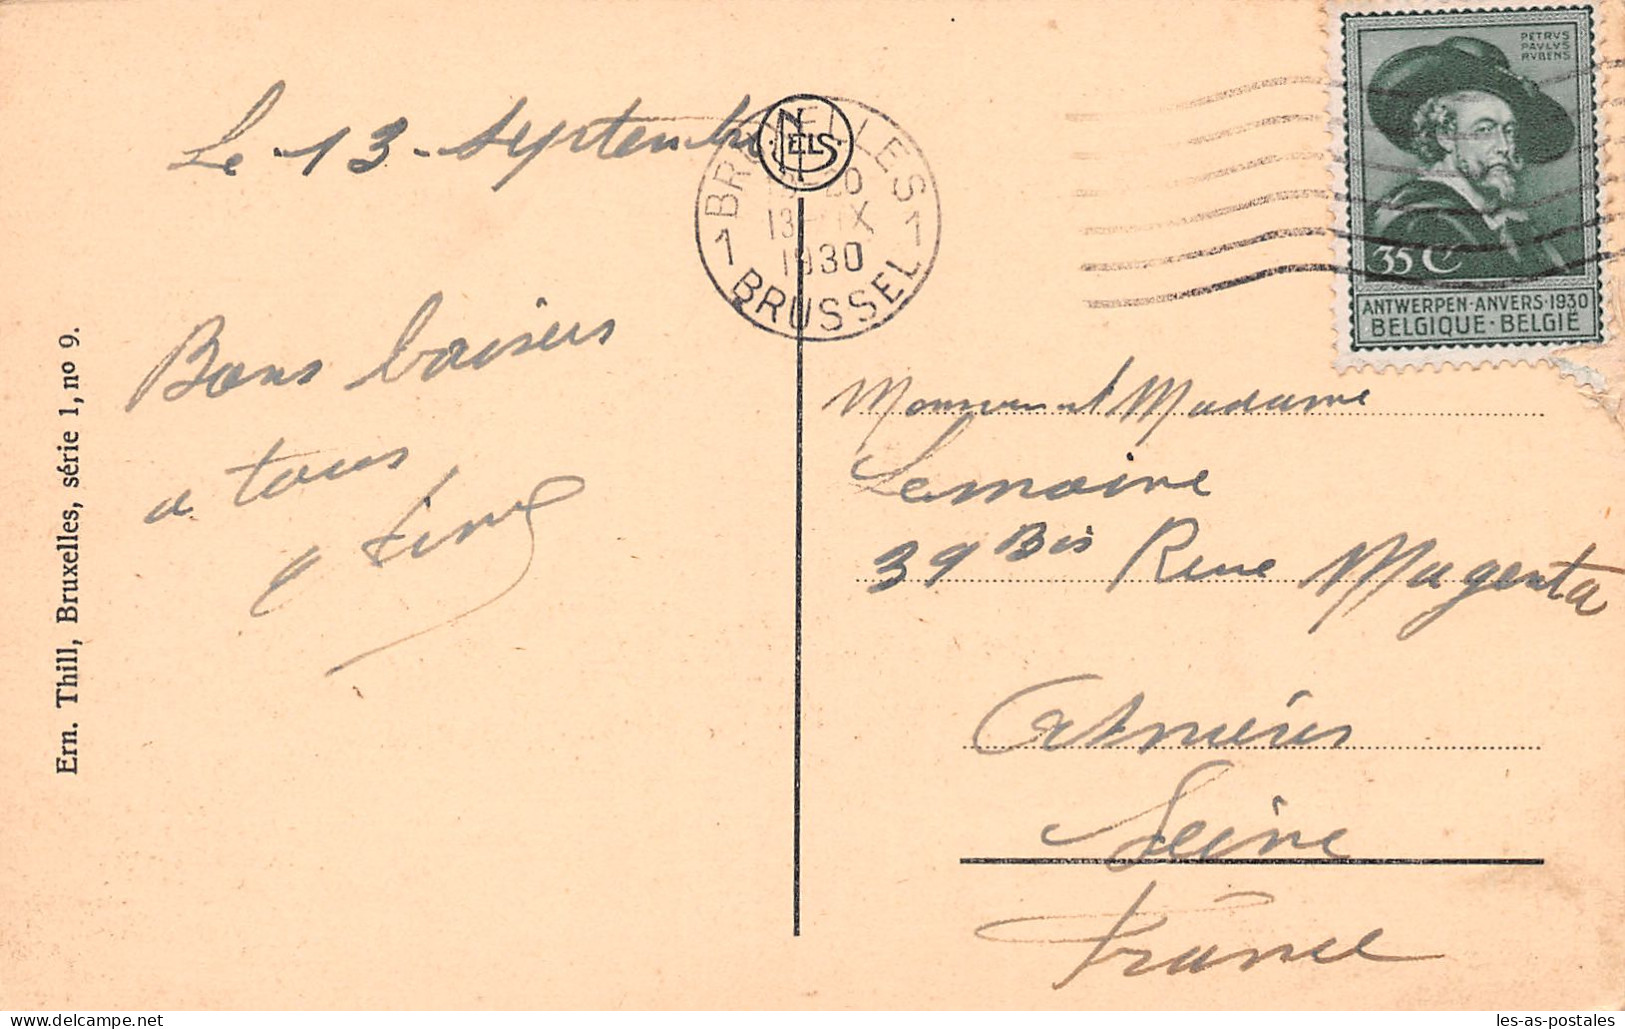 Le 13 septembre
Bons baisers
a tous
Ern. Thill, Bruxelles, série 1, nº 9.
NELS
BRUXELLES
1 1
13-IX
1930
BRUSSEL
PETRVS
PAVLVS
RVBENS
35 C
ANTWERPEN-ANVERS-1930
BELGIQUE-BELGIË
Monsieur et Madame
Lemoine
39 Bis Rue Magenta
Asnières
Seine
France
les-as-postales